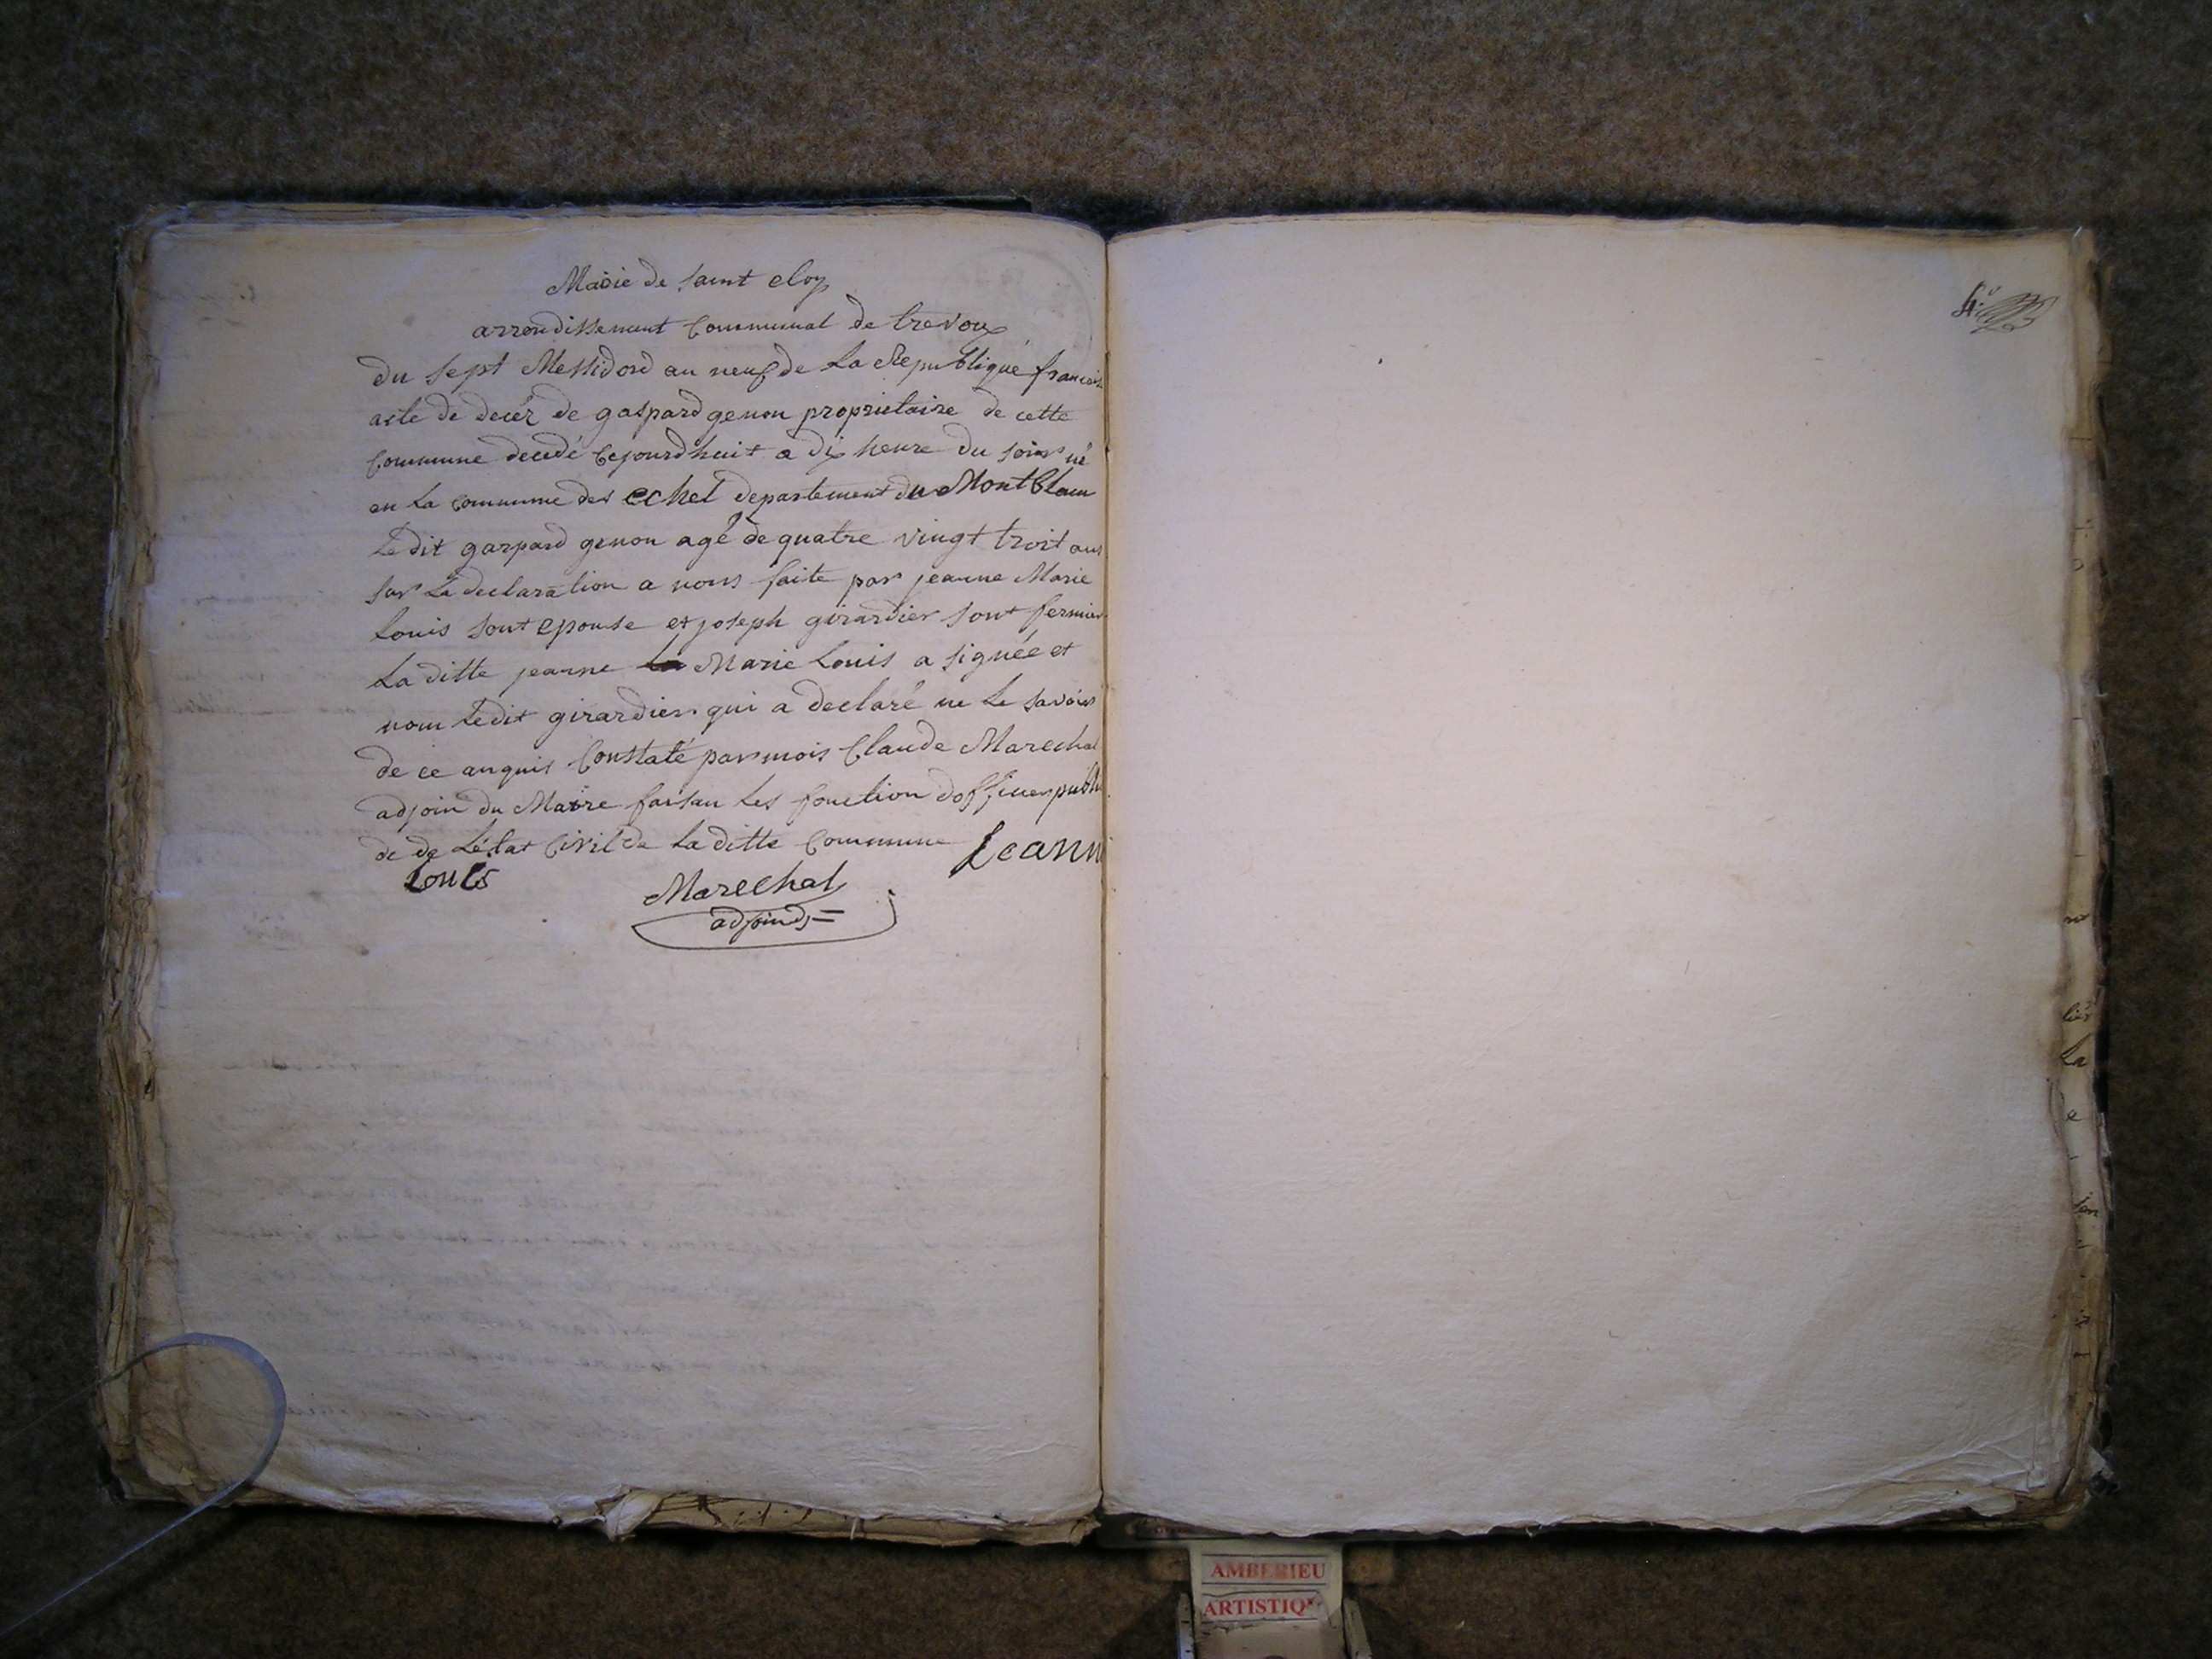 Mairie de saint eloy
arrondissement Communal de trevoux
du sept Messidord an neuf de La Republique francais
acte de decér de gaspard genon proprietaire de cette
Commune decedé Cejourdhuit a dix heure du soir né
en La commune des echel departement du Montblanc
Ledit garpard genon agé de quatre vingt troit ans
sur La declaration a nous faite par jeanne Marie
Louis sont epouse et joseph girardier sont fermier
La ditte jeanne Marie Louis a signée et
nom Ledit girardier qui a declaré ne Le savoir
de ce anquis Constaté par mois Claude Marechal
adjoin du Maire faisan Les fonction dofficier publi
de de Létat Civil de La ditte Commune Jeann
Louis
Marechal
adjoind
4.
AMBERIEU
ARTISTIQ